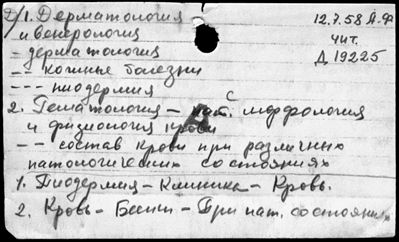 2/1. Дерматология
и венерология
12.7.58 Я.Ф
чит.
Д 19225
- дерматология
-- кожные болезни
--- пиодермия
С
2. Гематология - пат. морфология
и физиология крови
А
-- состав крови при различных
патологических состояниях
1. Пиодермия - Клиника - Кровь.
2. Кровь - Белки - При пат. состояниях